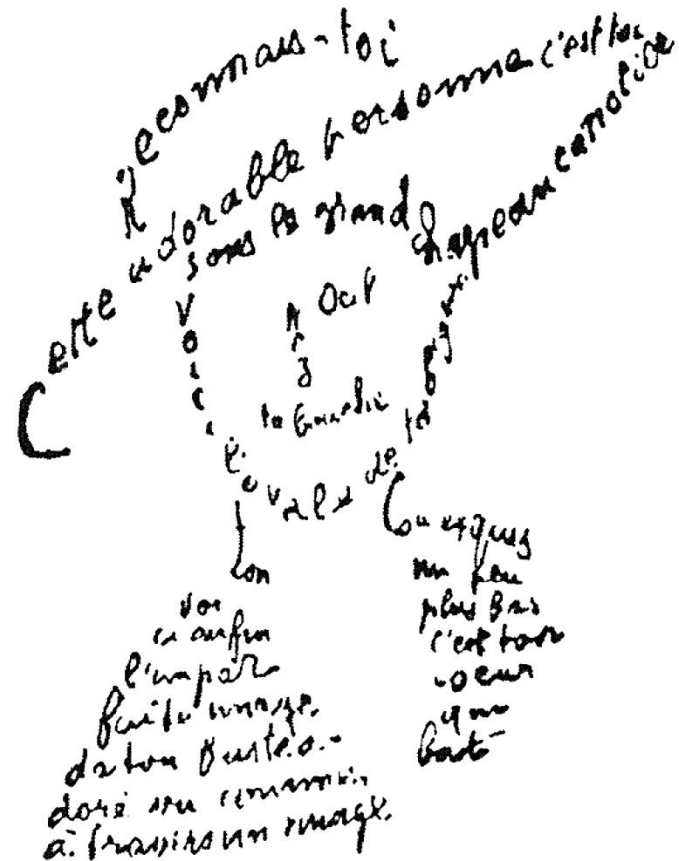 Reconnais-toi
Cette adorable personne c'est toi
Sous le grand chapeau canotier
Oeil
Nez
ta bouche
Voici l'ovale de ta figure
Ton cou exquis
Voi
ci enfin
l'impar
faite image
de ton buste a
doré vu comme
à travers un nuage
Un peu
plus bas
c'est ton
coeur
qui
bat